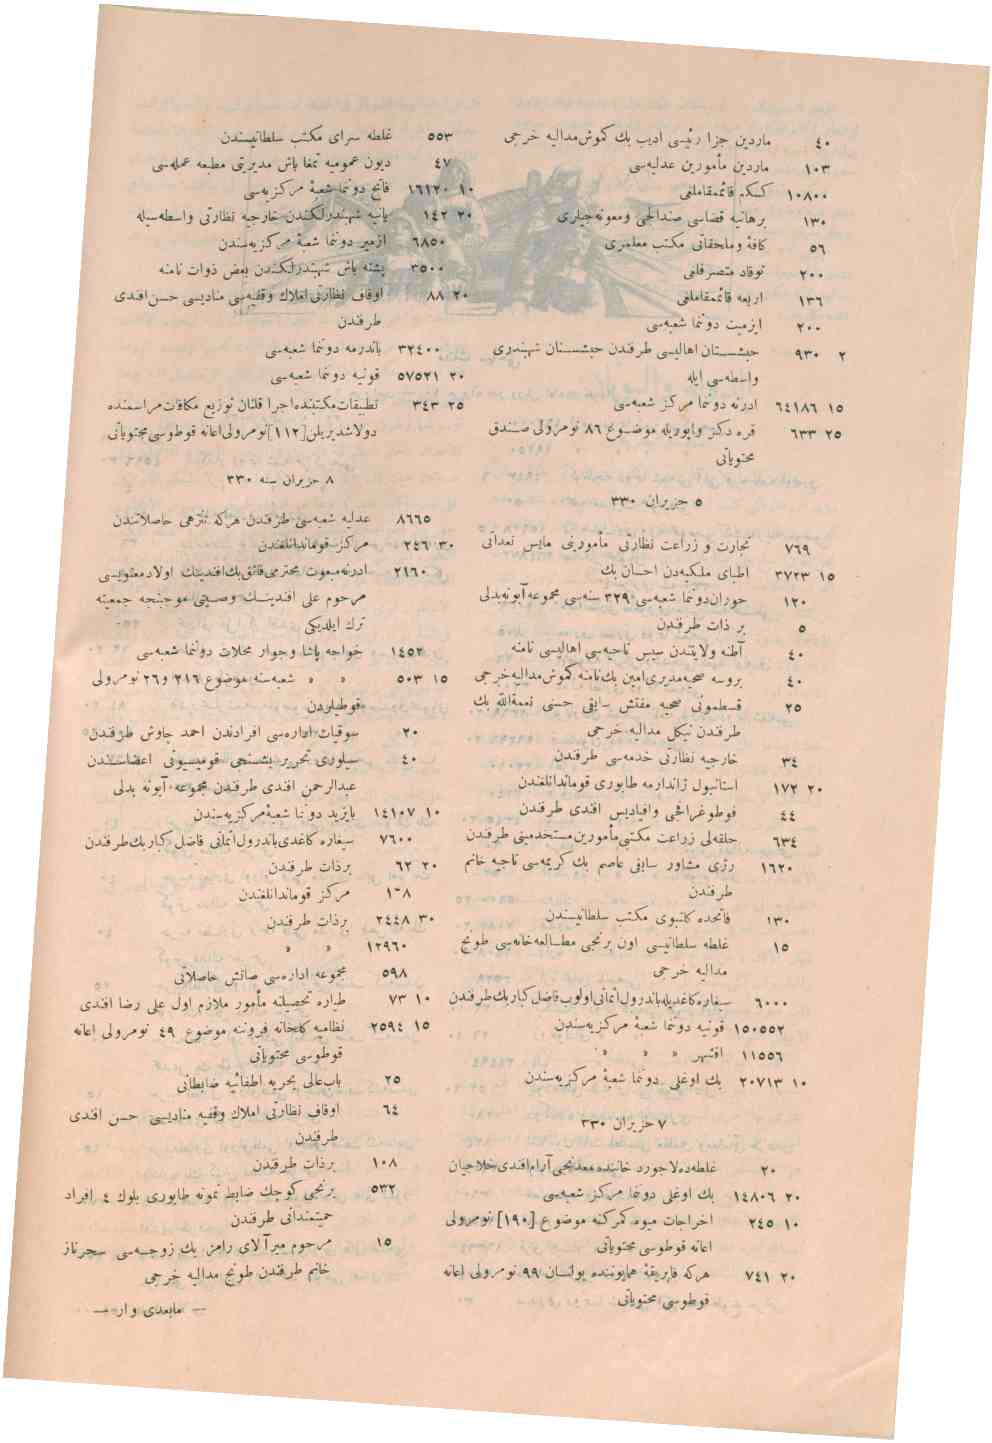 ٤٠ ماردین جزا رئیسی ادیب بك كموش مدالیه خرجی
١٠٣ ماردین مأمورین عدلیه‌سی
١٠٨٠٠ كسكیم قائممقاملغی
١٣٠ برهانیه قضاسی صندالجی ومعونه‌جیلری
٥٦ كافهٔ وملحقاتی مكتب معلملری
٢٠٠ توقاد متصرفلغی
١٣٦ اربعه قائممقاملغی
٢٠٠ ازمیت دوننما شعبه‌سی
٢ ٩٣٠ حبشستان اهالیسی طرفندن حبشستان شهبندری
واسطه‌سی ایله
١٥ ٦٤١٨٦ ادرنه دوننما مركز شعبه‌سی
٢٥ ٦٣٣ قره دكز واپوریله موضوع ٨٦ نومرولی صندق
محتویاتی
٥ حزیران ٣٣٠
٧٦٩ تجارت و زراعت نظارتی مأمورینی مایس نعداتی
١٥ ٣٧٢٣ اطبای ملكیه‌دن احسان بك
١٢٠ حوران دوننما شعبه‌سی ٣٢٩ سنه‌سی مجموعه آبونه بدلی
٥ بر ذات طرفندن
٤٠ آطنه ولایتندن سیس ناحیه‌سی اهالیسی نامنه
٤٠ بروسه صحیه مدیری امین بك نامنه كموش مدالیه خرجی
٢٥ قسطمونی صحیه مفتش سابقی حسنی نعمة الله بك
طرفندن نیكل مدالیه خرجی
٣٤ خارجیه نظارتی خدمه‌سی طرفندن
٢٠ ١٧٢ استانبول ژاندارمه طابوری قوماندانلغندن
٤٤ فوطوغرافجی وافیادیس افندی طرفندن
٦٣٤ حلقه‌لی زراعت مكتبی مأمورین مستخدمینی طرفندن
١٦٢٠ رژی مشاور سابقی عاصم بك كریمه‌سی ناجیه خانم
طرفندن
١٣٠ فاتحده كانبوی مكتب سلطانیسندن
١٥ غلطه سلطانیسی اون برنجی مطالعه‌خانه‌سی طونج
مدالیه خرجی
٦٠٠٠ سیغاره كاغدیله باندرول اثمانی اولوب فاضل كبار بك طرفندن
١٥٠٥٥٢ قونیه دوننما شعبهٔ مركزیه‌سندن
١١٥٥٦ آقشهر » » »
١٠ ٢٠٧١٣ بك اوغلی دوننما شعبهٔ مركزیه‌سندن
٧ حزیران ٣٣٠
٢٠ غلطه‌ده لاجورد خاننده معدنجی آرام افندی خلاجیان
٢٠ ١٤٨٠٦ بك اوغلی دوننما مركز شعبه‌سی
١٠ ٢٤٥ اخراجات میوه كمركنه موضوع [١٩٠] نومرولی
اعانه قوطوسی محتویاتی
٢٠ ٧٤١ هركه فابریقهٔ همایوننده بولنان ٩٩ نومرولی اعانه
قوطوسی محتویاتی
٥٥٣ غلطه سرای مكتب سلطانیسندن
٤٧ دیون عمومیه تمغا باش مدیریتی مطبعه عمله‌سی
١٠ ١٦١٢٠ فاتح دوننما شعبهٔ مركزیه‌سی
٢٠ ١٤٢ یانیه شهبندرلكندن خارجیه نظارتی واسطه‌سیله
٦٨٥٠ ازمیر دوننما شعبهٔ مركزیه‌سندن
٣٥٠٠ پشته باش شهبندرلكندن بعض ذوات نامنه
٢٠ ٨٨ اوقاف نظارتی املاك وقفیه‌سی منادیسی حسن افندی
طرفندن
٣٢٤٠٠ باندرمه دوننما شعبه‌سی
٢٠ ٥٧٥٢١ قونیه دوننما شعبه‌سی
٢٥ ٣٤٣ تطبیقات مكتبنده اجرا قلنان توزیع مكافات مراسمنده
دولاشدیریلن [١١٢] نومرولی اعانه قوطوسی محتویاتی
٨ حزیران سنه ٣٣٠
٨٦٦٥ عدلیه شعبه‌سی طرفندن هركه تنزهی حاصلاتندن
٣٠ ٢٤٦ مركز قوماندانلغندن
٢١٦٠ ادرنه مبعوث محترمی فائق بك افندینك اولاد معنویسی
مرحوم علی افندینك وصیتی موجبنجه جمعیته
ترك ایلدیكی
١٤٥٢ خواجه پاشا وجوار محلات دوننما شعبه‌سی
١٥ ٥٠٣ » » شعبه‌سنه موضوع ٢١٦ و٢٦ نومرولی
قوطیلردن
٢٠ سوقیات اداره‌سی افرادندن احمد جاوش طرفندن
٤٠ سیلوری تحریر بشنجی قومیسیونی اعضاسندن
عبدالرحمن افندی طرفندن مجموعه آبونه بدلی
١٠ ١٤١٠٧ بایزید دوننما شعبهٔ مركزیه‌سندن
٧٦٠٠ سیغاره كاغدی باندرول اثمانی فاضل كبار بك طرفندن
٢٠ ٦٢ برذات طرفندن
مركز قوماندانلغندن
٣٠ ٢٤٤٨ برذات طرفندن
١٢٩٦٠ » »
٥٩٨ مجموعه اداره‌سی صاتش حاصلاتی
١٠ ٧٣ طیاره تحصیلنه مأمور ملازم اول علی رضا افندی
١٥ ٢٥٩٤ نظامیه كتابخانه فروننه موضوع ٤٩ نومرولی اعانه
قوطوسی محتویاتی
٢٥ باب‌عالی بحریه اطفائیه ضابطانی
٦٤ اوقاف نظارتی املاك وقفیه منادیسی حسن افندی
طرفندن
١٠٨ برذات طرفندن
٥٣٢ برنجی كوچك ضابط نمونه طابوری بلوك ٤ افراد
حمیتمندانی طرفندن
١٥ مرحوم میرآلای رامز بك زوجه‌سی سحرناز
خانم طرفندن طونج مدالیه خرجی
— مابعدی وار —